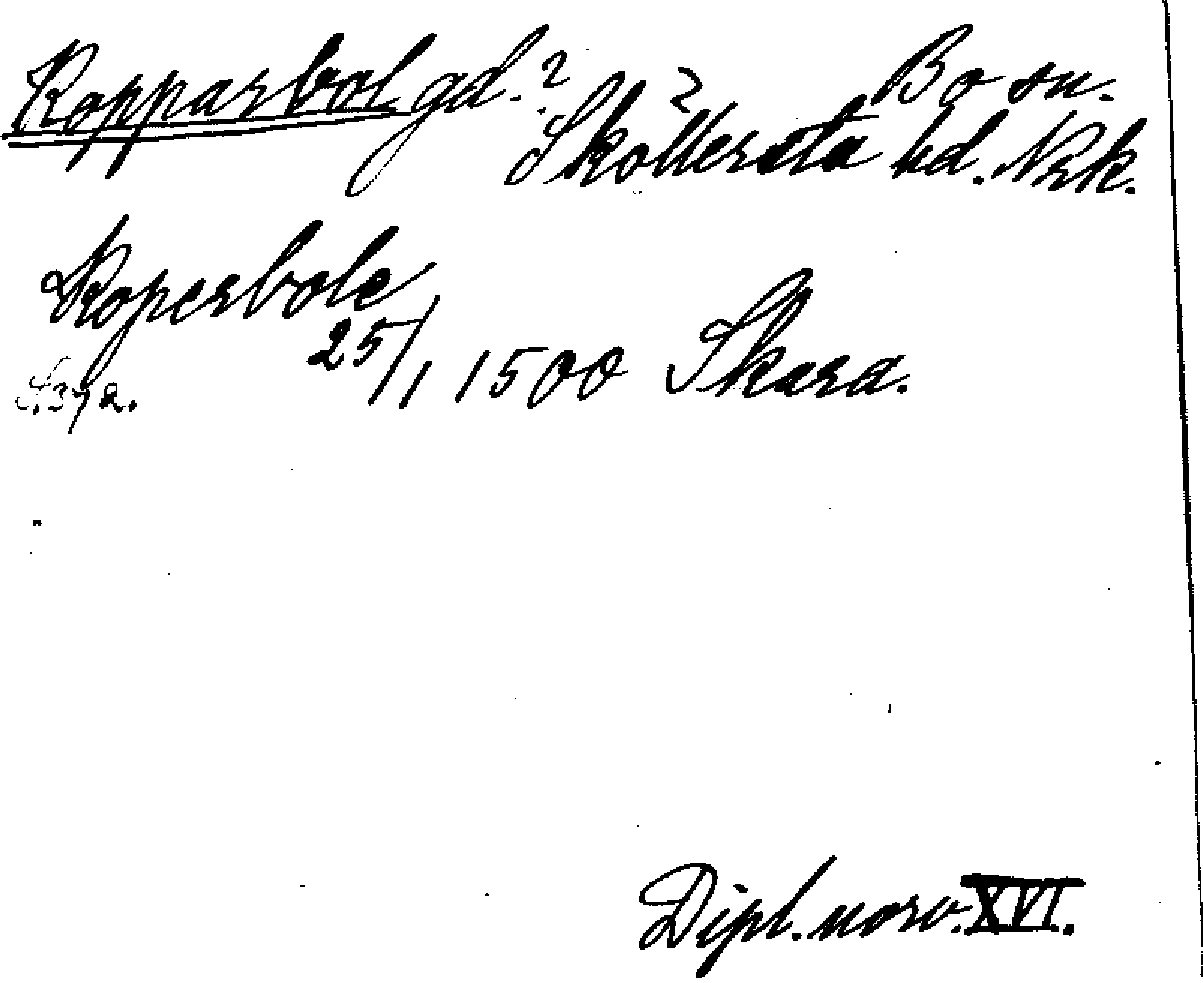 Kopparbol gd.? Bo sn.
Sköllersta hd. Nrk.
Koperbole
25/1 1500 Skara.
s. 372.
Dipl. norv. XVI.